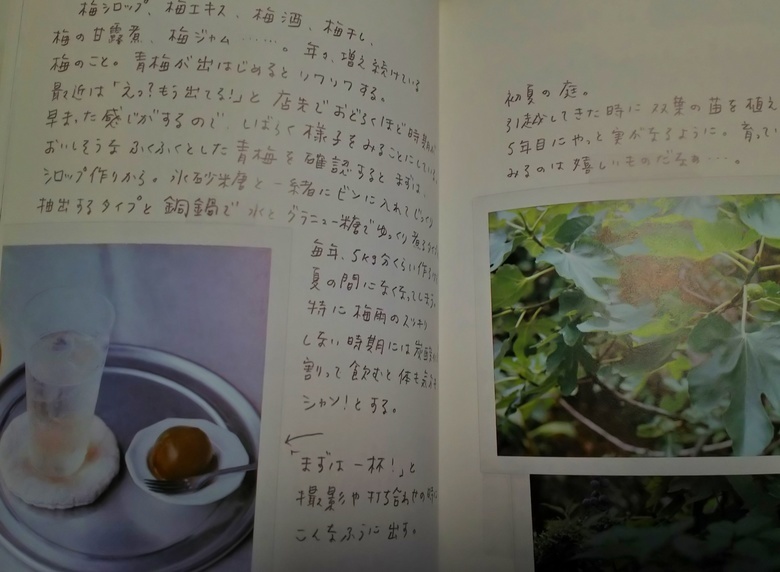 梅シロップ、梅エキス、梅酒、梅干し、
梅の甘露煮、梅ジャム……。年々、増え続けている
梅のこと。青梅が出はじめるとソワソワする。
最近は「えっ?もう出てる!」と店先でおどろくほど時期が
早まった感じがするので、しばらく様子をみることにしている。
おいしそうなふくふくとした青梅を確認するとまずは、
シロップ作りから。氷砂糖と一緒にビンに入れてじっくり
抽出するタイプと銅鍋で水とグラニュー糖でゆっくり煮る
毎年、5kg分くらい作る
夏の間になくなってしまう。
特に梅雨のスッキリ
しない時期には炭酸
割って飲むと体も
シャン!とする。
「まずは一杯!」と
撮影や打ち合わせの時に
こんなふうに出す。
初夏の庭。
引越してきた時に双葉の苗を植え
5年目にやっと実がなるように。育って
みるのは嬉しいものだなぁ…。